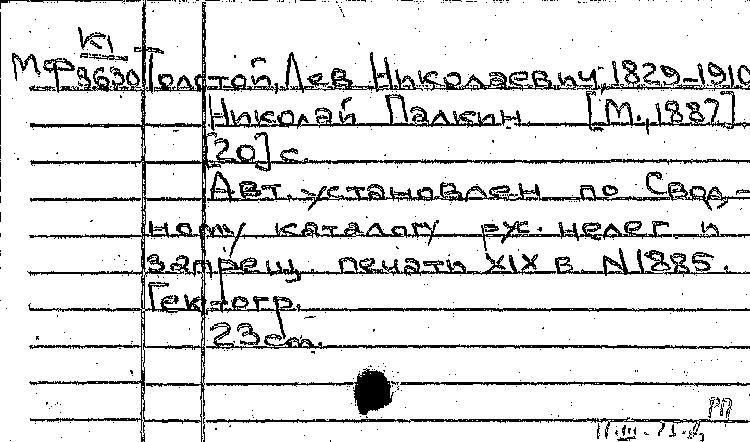 К1
Мф 9630 Толстой, Лев Николаевич, 1829-1910
Николай Палкин [М., 1887]
[20] с.
Авт. установлен по Свод-
ному каталогу рус. нелег. и
запрещ. печати XIX в. N1885.
Гектогр.
23 cm.